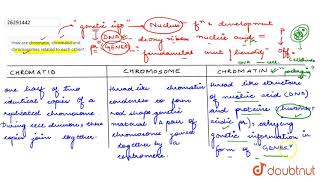 26291442
How are chromatin, chromatid and
chromosomes related to each other?
"genetic info" → Nucleus fn + development
DNA → deoxyribonucleic acid
"GENES" fundamental unit heredity
CHROMATID
CHROMOSOME
CHROMATIN
"packaging"
one half of two
identical copies of a
replicated chromosome
During cell division, these
copies join together.
thread like chromatin
condenses to form
rod shape genetic
material a pair of
chromosome joined
together by a
centromere.
thread like structure
of nucleic acid (DNA)
and proteins
carrying
genetic information in
form of GENES"
doubtnut